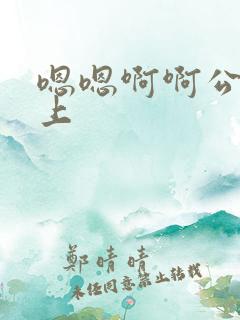 嗯嗯啊啊公
上
鄭晴晴
未经同意禁止转载